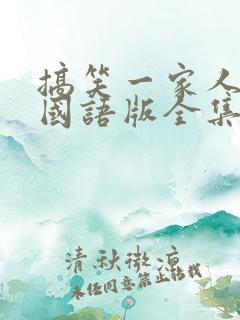 搞笑一家人
國語版全集
清秋微涼
未经同意禁止转载